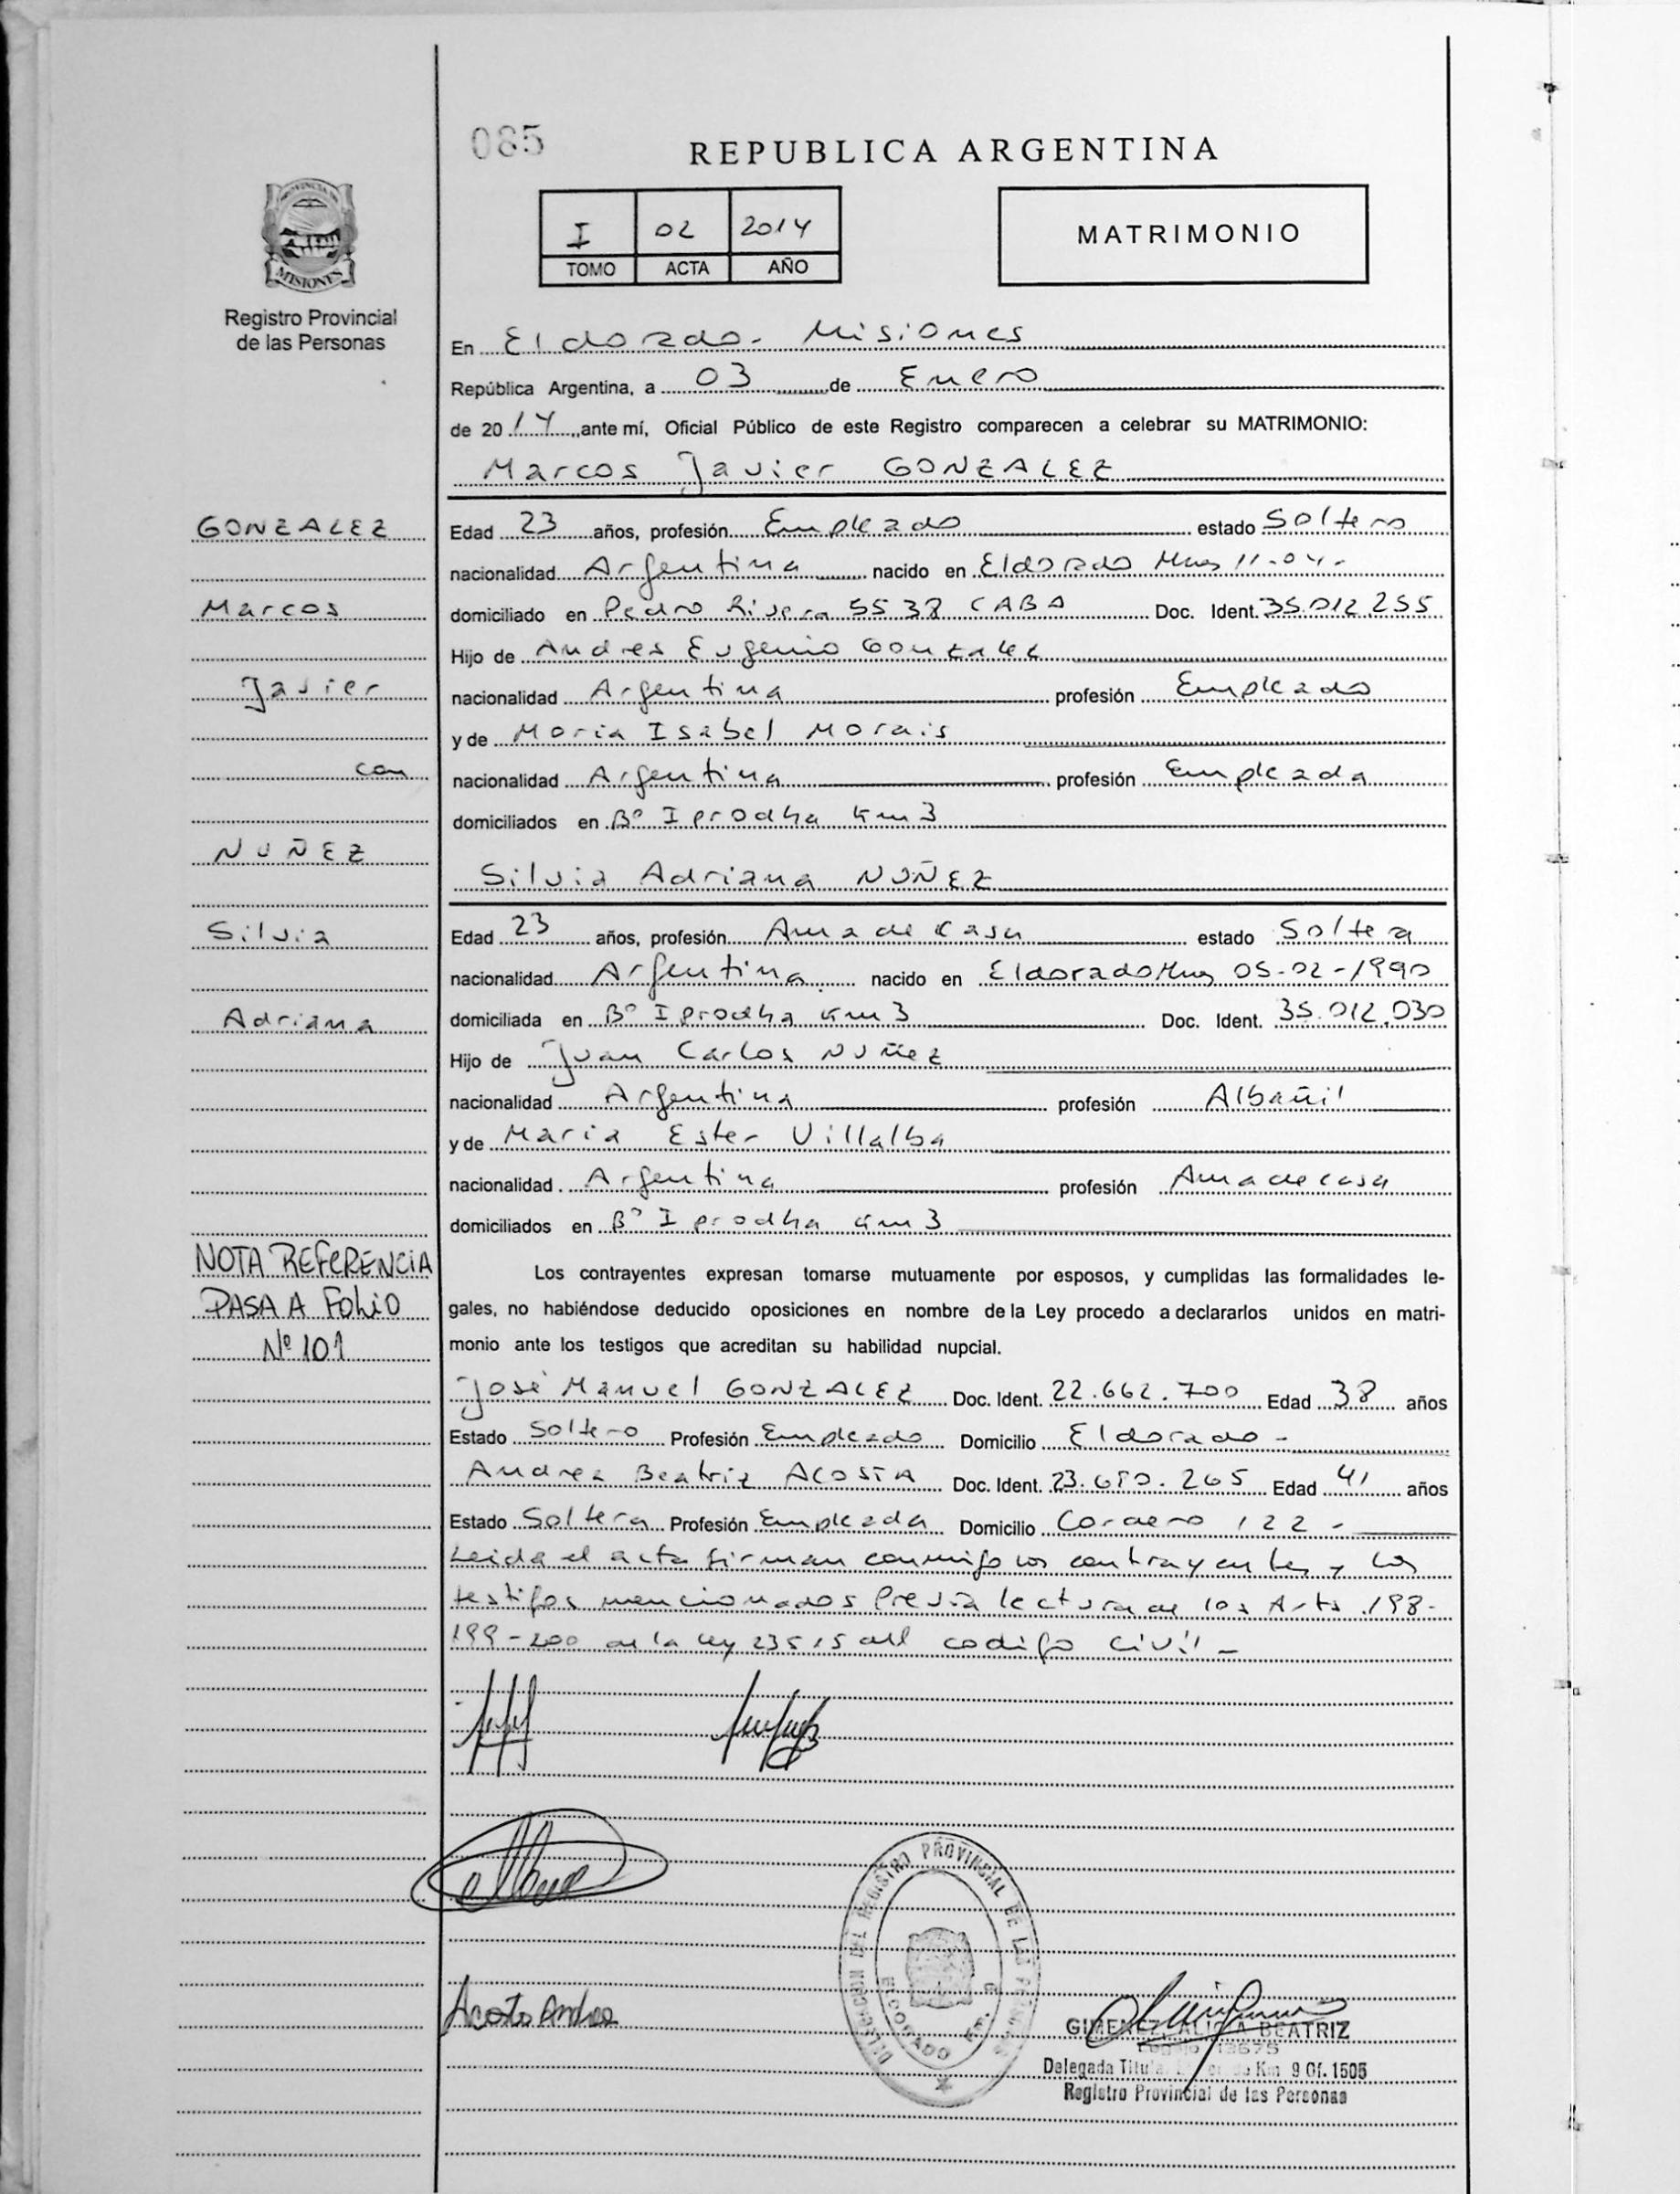 085
REPUBLICA ARGENTINA
I 02 2014
TOMO ACTA AÑO
MATRIMONIO
PROVINCIA DE
MISIONES
Registro Provincial
de las Personas
En Eldorado- Misiones
República Argentina, a 03 de Enero
de 20 14 ante mí, Oficial Público de este Registro comparecen a celebrar su MATRIMONIO:
Marcos Javier GONZALEZ
GONZALEZ
Marcos
Javier
con
NUÑEZ
Silvia
Adriana
NOTA REFERENCIA
PASA A FOLIO
Nº 101
Edad 23 años, profesión Empleado estado Soltero
nacionalidad Argentina nacido en Eldorado Mnes 11-04-
domiciliado en Pedro Rivera 5538 CABA Doc. Ident. 35.012.255
Hijo de Andres Eugenio Gonzalez
nacionalidad Argentina profesión Empleado
y de Maria Isabel Morais
nacionalidad Argentina profesión Empleada
domiciliados en Bº Iprodha Km 3
Silvia Adriana NUÑEZ
Edad 23 años, profesión Ama de Casa estado Soltera
nacionalidad Argentina nacido en Eldorado Mnes 05-02-1990
domiciliada en Bº Iprodha Km 3 Doc. Ident. 35.012.030
Hijo de Juan Carlos Nuñez
nacionalidad Argentina profesión Albañil
y de Maria Ester Villalba
nacionalidad Argentina profesión Ama de casa
domiciliados en Bº Iprodha Km 3
Los contrayentes expresan tomarse mutuamente por esposos, y cumplidas las formalidades le-
gales, no habiéndose deducido oposiciones en nombre de la Ley procedo a declararlos unidos en matri-
monio ante los testigos que acreditan su habilidad nupcial.
José Manuel GONZALEZ Doc. Ident. 22.662.700 Edad 38 años
Estado Soltero Profesión Empleado Domicilio Eldorado-
Andrea Beatriz ACOSTA Doc. Ident. 23.680.265 Edad 41 años
Estado Soltera Profesión Empleada Domicilio Cordero 122-
Leida el acta firman conmigo los contrayentes y los
testigos mencionados Previa lectura de los Arts 198-
199-200 de la ley 23515 del codigo civil-
Acosta Andrea
DIRECCION DEL REGISTRO PROVINCIAL DE LAS PERSONAS
ELDORADO
GIMENEZ, ALICIA BEATRIZ
Legajo 13675
Delegada Titular Km 9 Of. 1505
Registro Provincial de las Personas